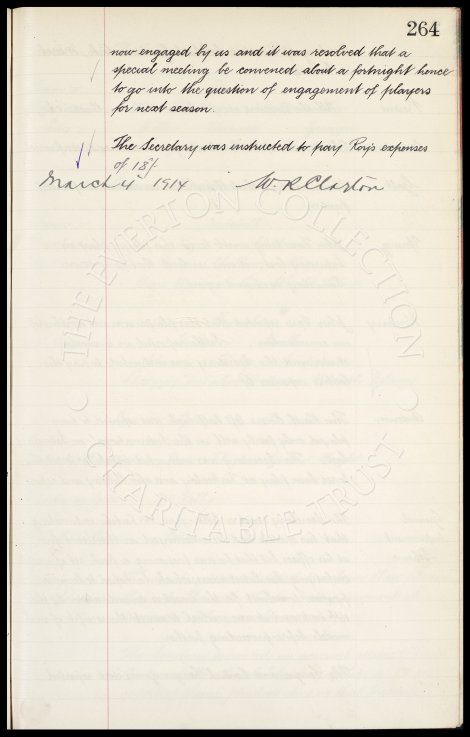 264
now engaged by us and it was resolved that a
special meeting be convened about a fortnight hence
to go into the question of engagement of players
for next season.
The Secretary was instructed to pay Roy's expenses
of 18/-
March 4 1914 W. R. Clayton
THE EVERTON COLLECTION
CHARITABLE TRUST